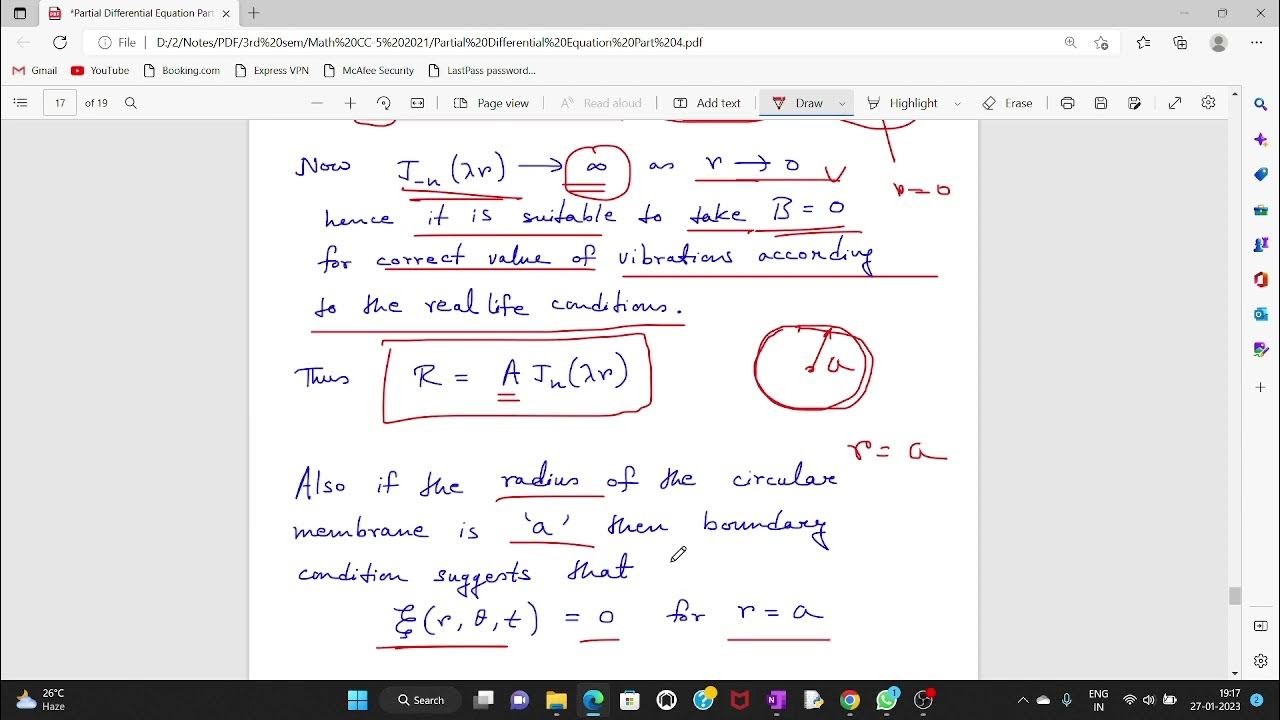 *Partial Differential Equation Part
File
D:/2/Notes/PDF/3rd%20sem/Math%20CC-5%202021/Partial%20Differential%20Equation%20Part%204.pdf
Gmail YouTube Booking.com Express VPN McAfee Security LastPass password...
17 of 19 Page view Read aloud Add text Draw Highlight Erase
Now J₋ₙ(λr) → ∞ as r → 0
r = 0
hence it is suitable to take B = 0
for correct value of vibrations according
to the real life conditions.
a
Thus R = A Jₙ(λr)
r = a
Also if the radius of the circular
membrane is 'a' then boundary
condition suggests that
ξ(r, θ, t) = 0 for r = a
26°C
Haze
Search
1
ENG
IN
19:17
27-01-2023
2